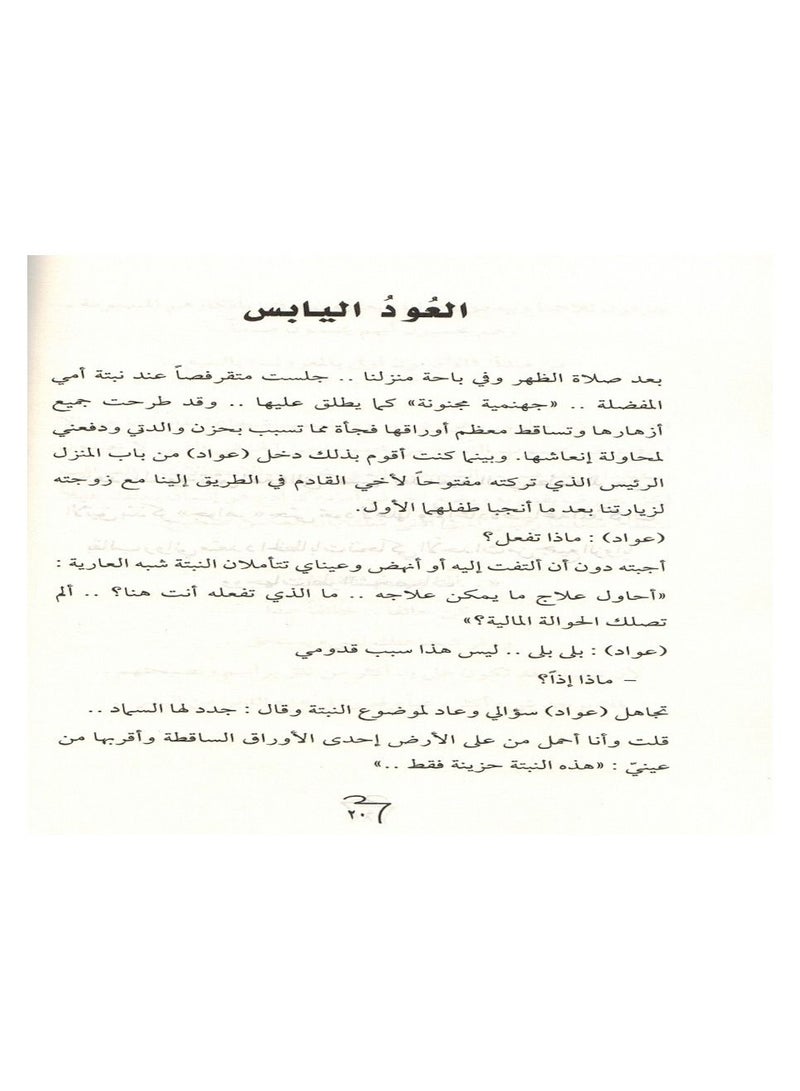 العُودُ اليابس
بعد صلاة الظهر وفي باحة منزلنا .. جلست متقرفصاً عند نبتة أمي
المفضلة .. «جهنمية مجنونة» كما يطلق عليها .. وقد طرحت جميع
أزهارها وتساقط معظم أوراقها فجأة مما تسبب بحزن والدتي ودفعني
لمحاولة إنعاشها. وبينما كنت أقوم بذلك دخل (عواد) من باب المنزل
الرئيس الذي تركته مفتوحاً لأخي القادم في الطريق إلينا مع زوجته
لزيارتنا بعد ما أنجبا طفلهما الأول.
(عواد) : ماذا تفعل؟
أجبته دون أن ألتفت إليه أو أنهض وعيناي تتأملان النبتة شبه العارية :
«أحاول علاج ما يمكن علاجه .. ما الذي تفعله أنت هنا؟ .. ألم
تصلك الحوالة المالية؟»
(عواد) : بلى بلى .. ليس هذا سبب قدومي
– ماذا إذاً؟
تجاهل (عواد) سؤالي وعاد لموضوع النبتة وقال : جدد لها السماد ..
قلت وأنا أحمل من على الأرض إحدى الأوراق الساقطة وأقربها من
عينيّ : «هذه النبتة حزينة فقط ..»
٢٠